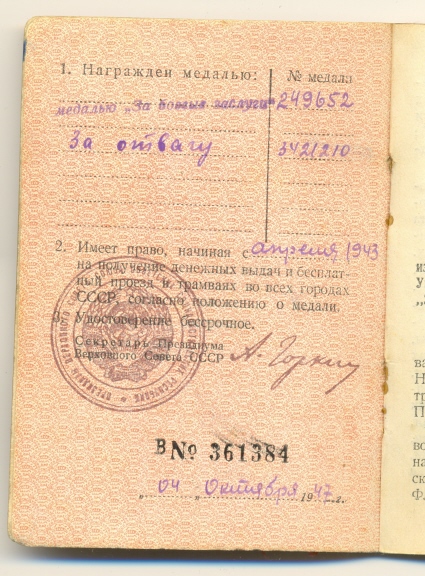 1. Награжден медалью:
№ медали
медалью „За боевые заслуги" 249652
За отвагу 3421210
2. Имеет право, начиная с апреля 1943
на получение денежных выдач и бесплат-
ный проезд в трамваях во всех городах
СССР, согласно положению о медали.
3. Удостоверение бессрочное.
Секретарь Президиума
Верховного Совета СССР А. Горкин
В № 361384
„04 Октября 1947 г.